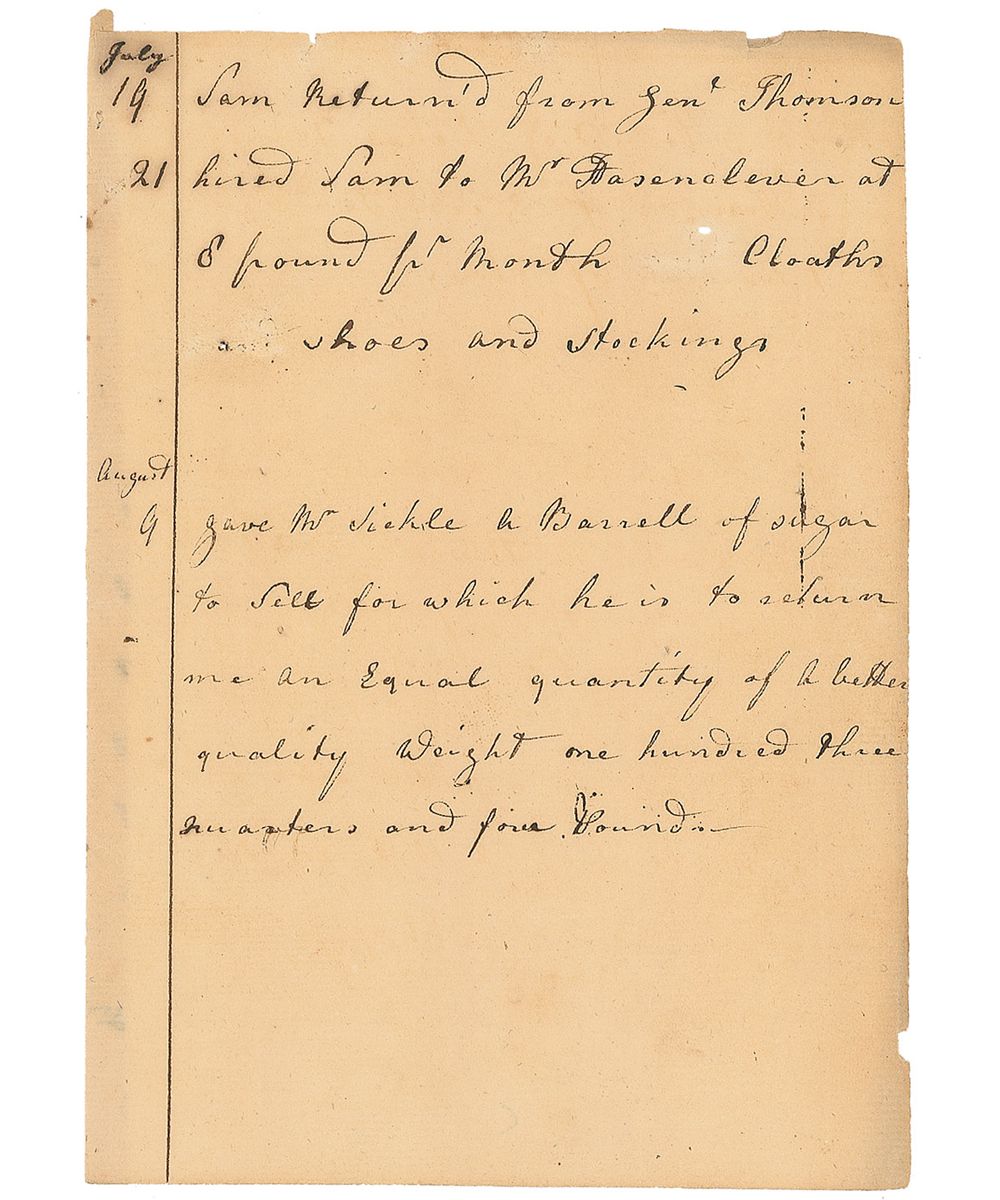 July
19 Sam Return'd from Gen.l Thomson
21 hired Sam to Mr Hasenclever at
8 pound pr Month Cloaths
and shoes and stockings
August
9 gave Mr Sickle a Barrell of sugar
to Sell for which he is to return
me an Equal quantity of a better
quality Weight one hundred three
quarters and four Pounds